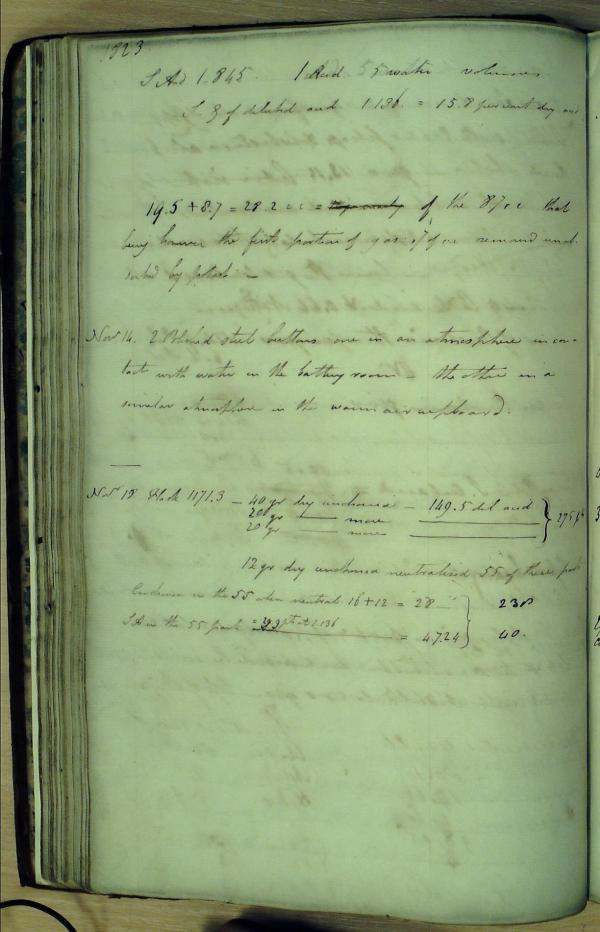 1823
S. Acid 1.845 1 Acid 5 water volumes
S. G of diluted acid 1.136 = 15.8 per cent dry acid
19.5 + 8.7 = 28.2 c i = of the 8.7 c i that
being however the first portion of gas .7 of c i remained unab-
sorbed by potash —
Novr 14. 2 Polished steel buttons one in an atmosphere in con-
tact with water in the battery room — the other in a
similar atmosphere in the warm air cupboard.
Novr 18 Flask 1171.3 — 40 gr dry cinchonia — 149.5 dil acid
20 gr more
20 gr more
12 gr dry cinchonia neutralised 55 of these parts
Cinchonia in the 55 when neutral 16 + 12 = 28 238
S A in the 55 parts = 29.9 pts at 1.136 = 4.724 40.